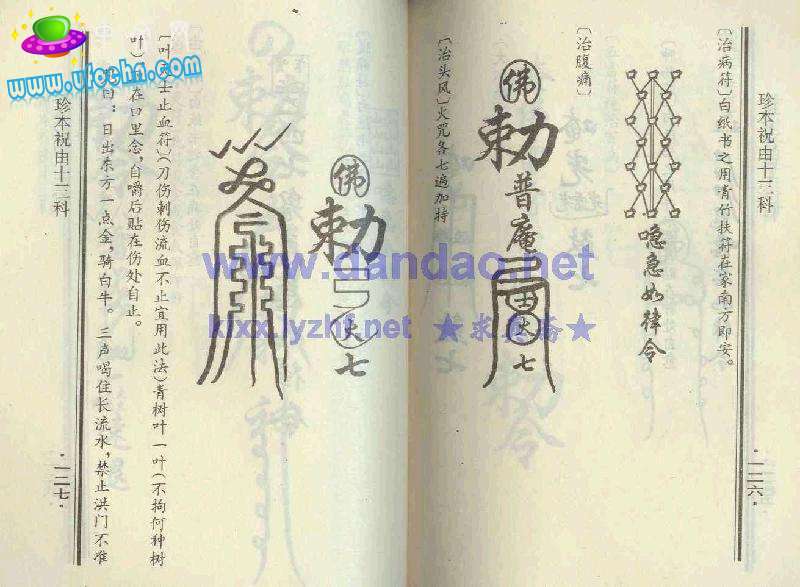 珍本祝由十三科
·一二六·
〔治病符〕白纸书之用青竹扶符在家南方即安。
唵急如律令
〔治腹痛〕
佛
勅
普庵
田
火
七
〔治头风〕火咒各七遍加持
佛
勅
火
七
士止血符〕(刀伤刺伤流血不止宜用此法)青树叶一叶(不拘何种树
叶)在口里念,自嚼后贴在伤处自止。
曰:日出东方一点金,骑白牛。三声喝住长流水,禁止洪门不准
珍本祝由十三科
·一二七·
www.ufocha.com
www.dandao.net
kjxx.lyzhf.net